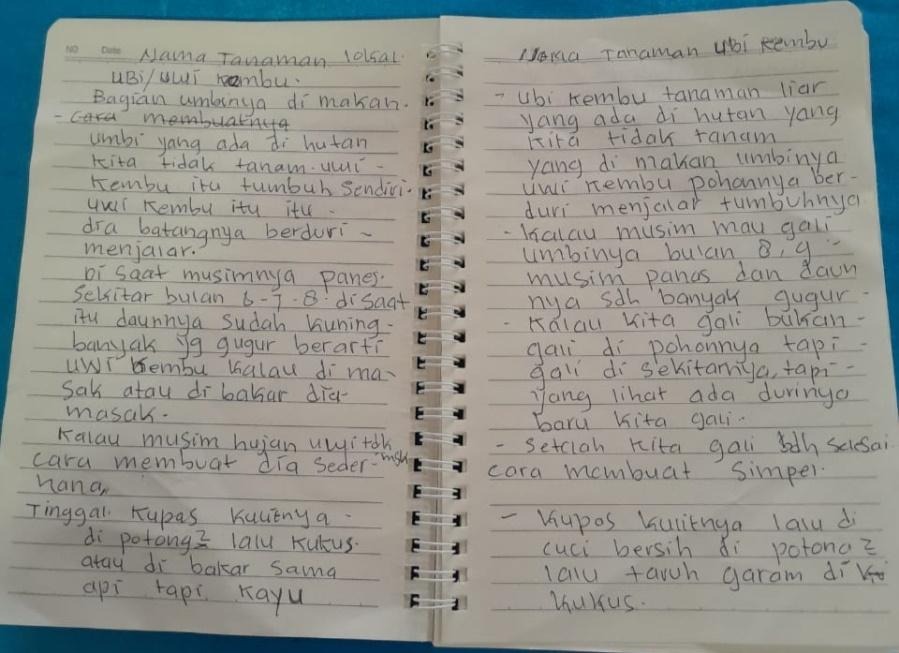 NO Date Nama Tanaman lolsal.
UBi/UWi Kembu.
Bagian umbinya di makan.
- Cara membuatnya
umbi yang ada di hutan
kita tidak tanam. uwi -
Kembu itu tumbuh sendiri.
uwi kembu itu itu -
dia batangnya berduri -
menjalar.
Di saat musimnya panes.
Sekitar bulan 6-7.8. disaat
itu daunnya sudah kuning -
banyak yg gugur berarti
uwi kembu kalau di ma-
sak atau di bakar dia-
masak.
Kalau musim hujan uwi tdk msk
cara membuat dia seder-
hana,
Tinggal kupas kulitnya -
di potong2 lalu kukus.
atau di bakar sama
api tapi kayu
Nama Tanaman ubi kembu
- Ubi kembu tanaman liar
yang ada di hutan yang
kita tidak tanam
yang di makan umbinya
uwi kembu pohonnya ber-
duri menjalar tumbuhnya
- Kalau musim mau gali
umbinya bulan 8,9 -
musim panas dan daun
nya sdh banyak gugur -
- Kalau kita gali bukan -
gali di pohonnya tapi -
gali di sekitarnya, tapi -
yang lihat ada durinya
baru kita gali.
- Setelah kita gali sdh selsai.
cara membuat simpel.
- Kupas kulitnya lalu di
cuci bersih di potong2
lalu taruh garam di
kukus.